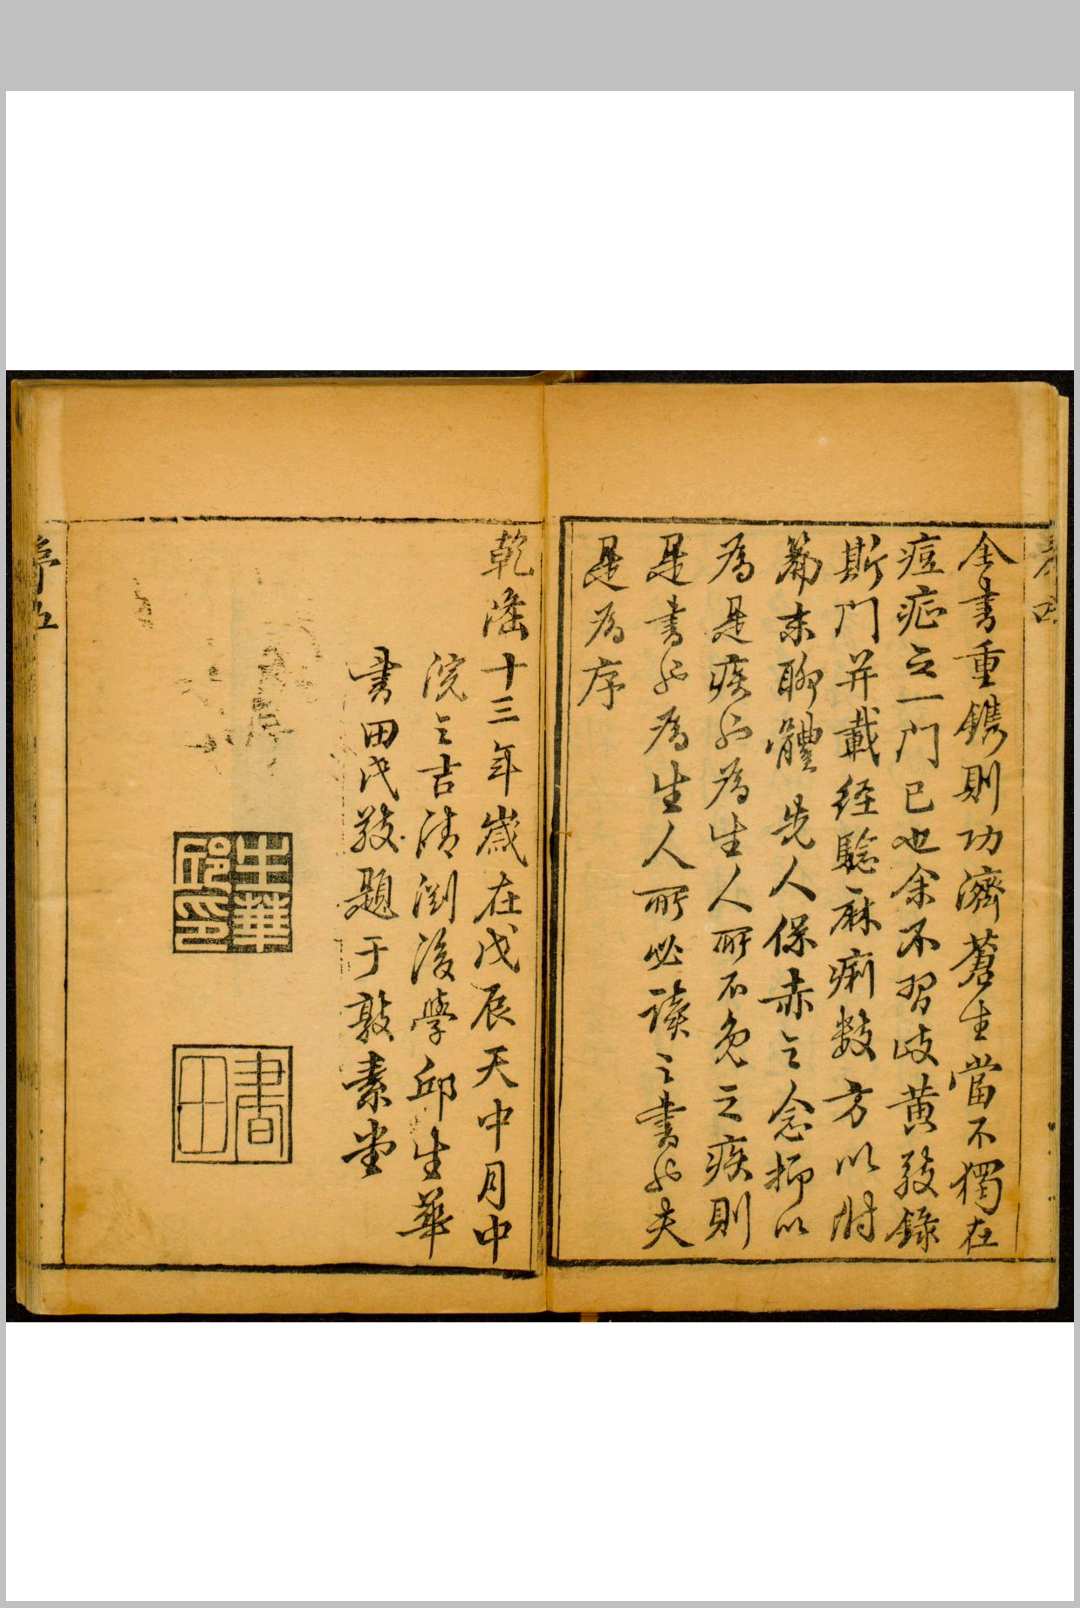 序四
全書重鐫則功濟蒼生當不獨在
痘疕之一門已也余不習岐黃錄
斯門并載經驗麻痢數方以附
篇末聊體先人保赤之念抑以
為是疾為生人所不免之疾則
是書為生人所必讀之書夫
是為序
乾隆十三年歲在戊辰天中月中
浣之吉清淵後學邱生華
書田氏敬題于敦素堂
生華
印
書田
序五